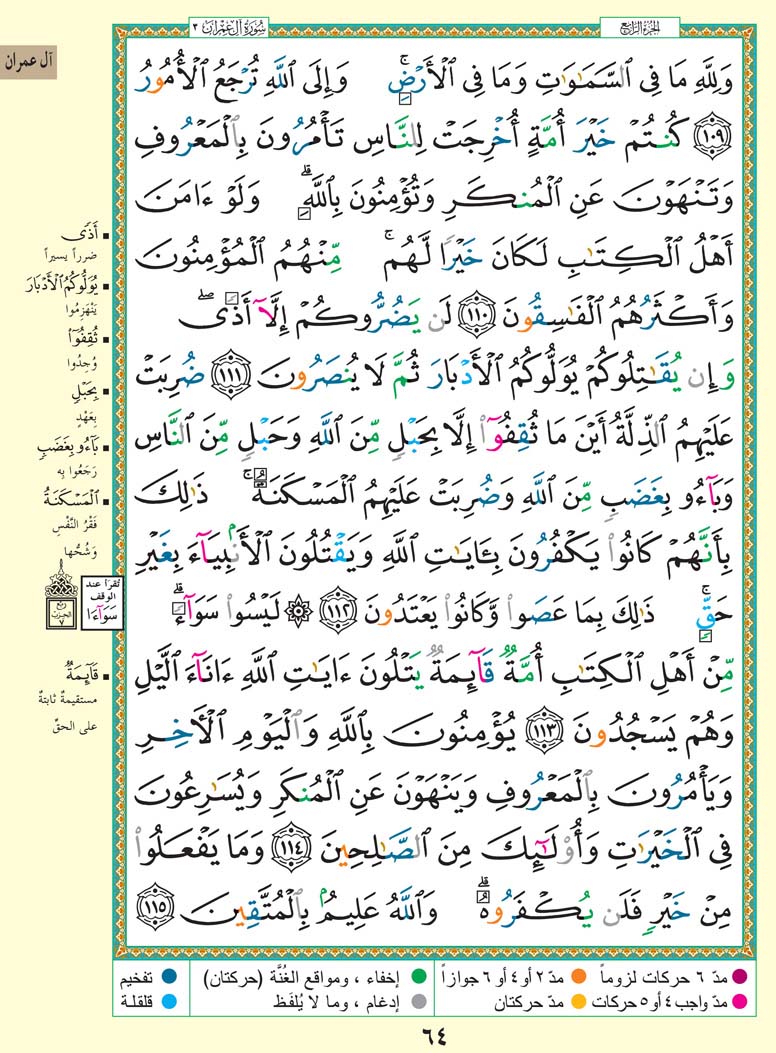 سُورَةُ آلِ عِمْرَان ٣
الجُزْءُ الرَّابِعُ
آل عمران
وَلِلَّهِ مَا فِي ٱلسَّمَٰوَٰتِ وَمَا فِي ٱلْأَرْضِۚ وَإِلَى ٱللَّهِ تُرْجَعُ ٱلْأُمُورُ
١٠٩ كُنتُمْ خَيْرَ أُمَّةٍ أُخْرِجَتْ لِلنَّاسِ تَأْمُرُونَ بِٱلْمَعْرُوفِ
وَتَنْهَوْنَ عَنِ ٱلْمُنكَرِ وَتُؤْمِنُونَ بِٱللَّهِۗ وَلَوْ ءَامَنَ
أَهْلُ ٱلْكِتَٰبِ لَكَانَ خَيْرًا لَّهُمۚ مِّنْهُمُ ٱلْمُؤْمِنُونَ
وَأَكْثَرُهُمُ ٱلْفَٰسِقُونَ ١١٠ لَن يَضُرُّوكُمْ إِلَّآ أَذًىۖ
وَإِن يُقَٰتِلُوكُمْ يُوَلُّوكُمُ ٱلْأَدْبَارَ ثُمَّ لَا يُنصَرُونَ ١١١ ضُرِبَتْ
عَلَيْهِمُ ٱلذِّلَّةُ أَيْنَ مَا ثُقِفُوٓا۟ إِلَّا بِحَبْلٍ مِّنَ ٱللَّهِ وَحَبْلٍ مِّنَ ٱلنَّاسِ
وَبَآءُو بِغَضَبٍ مِّنَ ٱللَّهِ وَضُرِبَتْ عَلَيْهِمُ ٱلْمَسْكَنَةُۚ ذَٰلِكَ
بِأَنَّهُمْ كَانُوا۟ يَكْفُرُونَ بِـَٔايَٰتِ ٱللَّهِ وَيَقْتُلُونَ ٱلْأَنۢبِيَآءَ بِغَيْرِ
حَقٍّۚ ذَٰلِكَ بِمَا عَصَوا۟ وَّكَانُوا۟ يَعْتَدُونَ ١١٢ ۞ لَيْسُوا۟ سَوَآءًۗ
مِّنْ أَهْلِ ٱلْكِتَٰبِ أُمَّةٌ قَآئِمَةٌ يَتْلُونَ ءَايَٰتِ ٱللَّهِ ءَانَآءَ ٱلَّيْلِ
وَهُمْ يَسْجُدُونَ ١١٣ يُؤْمِنُونَ بِٱللَّهِ وَٱلْيَوْمِ ٱلْءَاخِرِ
وَيَأْمُرُونَ بِٱلْمَعْرُوفِ وَيَنْهَوْنَ عَنِ ٱلْمُنكَرِ وَيُسَٰرِعُونَ
فِي ٱلْخَيْرَٰتِ وَأُو۟لَٰٓئِكَ مِنَ ٱلصَّٰلِحِينَ ١١٤ وَمَا يَفْعَلُوا۟
مِنْ خَيْرٍ فَلَن يُكْفَرُوهُۗ وَٱللَّهُ عَلِيمٌۢ بِٱلْمُتَّقِينَ ١١٥
▪ أَذًى
ضرراً يسيراً
▪ يُوَلُّوكُمُ ٱلْأَدْبَارَ
يَنْهَزِمُوا
▪ ثُقِفُوٓا۟
وُجِدُوا
▪ بِحَبْلٍ
بِعَهْدٍ
▪ بَآءُو بِغَضَبٍ
رَجَعُوا بِه
▪ ٱلْمَسْكَنَةُ
فَقْرُ النَّفْسِ
وَشُحُّها
تُقرَأ عند
الوقف
سَوَآءَا
ربع
الحزب
٧
▪ قَآئِمَةٌ
مستقيمةٌ ثابتةٌ
على الحقّ
مدّ ٦ حركات لزوماً
مدّ ٢ أو ٤ أو ٦ جوازاً
إخفاء ، ومواقع الغُنَّة (حركتان)
تفخيم
مدّ واجب ٤ أو ٥ حركات
مدّ حركتان
إدغام ، وما لا يُلفَظ
قلقلة
٦٤